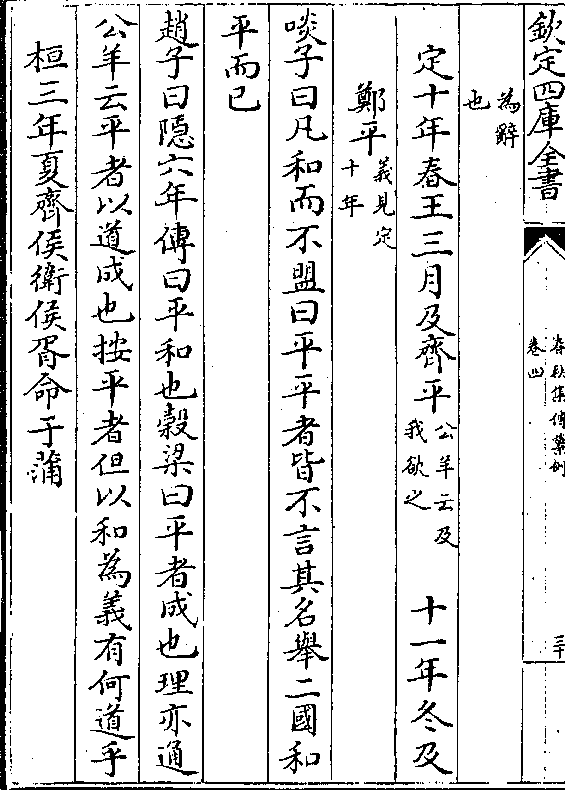 欽定四庫全書
春秋集傳纂例
卷四
三十
為辭
也
定十年春王三月及齊平公羊云及
我欲之
十一年冬及
鄭平義見定
十年
啖子曰凡和而不盟曰平平者皆不言其名舉二國和
平而已
趙子曰隱六年傳曰平和也穀梁曰平者成也理亦通
公羊云平者以道成也按平者但以和為義有何道乎
桓三年夏齊侯衛侯胥命于蒲